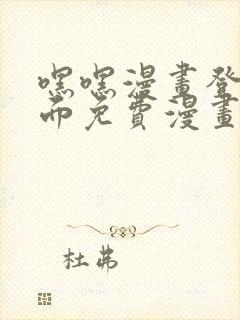 嘿嘿漫畫登
而免費漫畫
杜弗